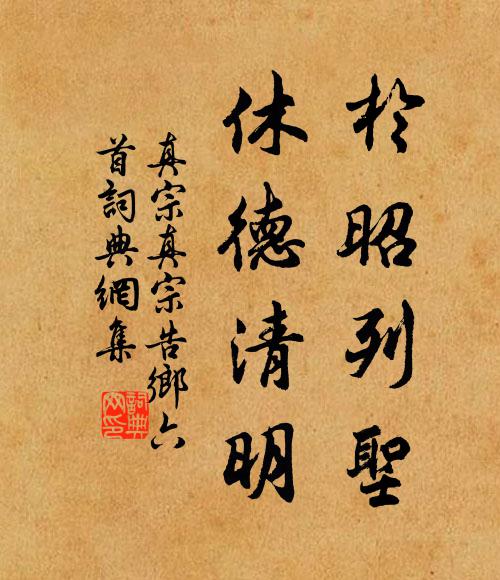 於昭列聖
休德清明
真宗真宗告鄉六
首詞典網集
詞典
网印